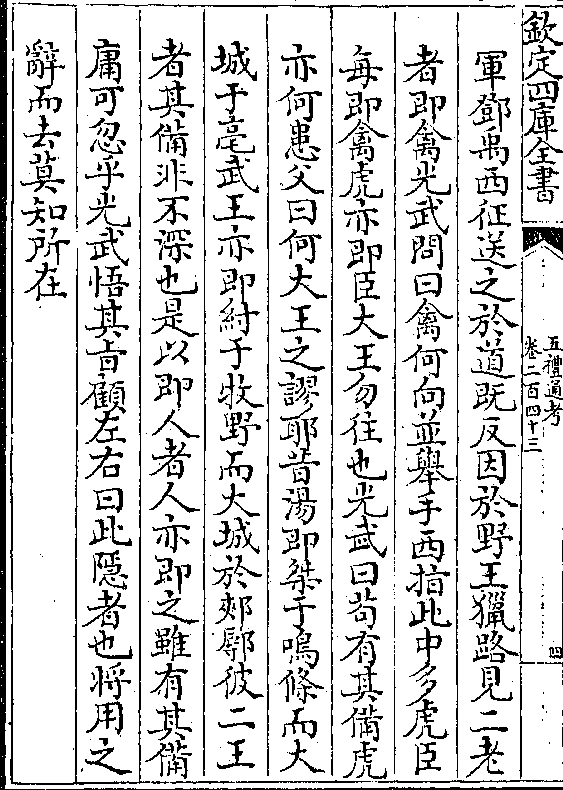 欽定四庫全書
五禮通考
卷二百四十三
四
軍鄧禹西征送之於道既反因於野王獵路見二老
者即禽光武問曰禽何向並舉手西指此中多虎臣
每即禽虎亦即臣大王勿往也光武曰茍有其備虎
亦何患父曰何大王之謬耶昔湯即桀于鳴條而大
城于亳武王亦即紂于牧野而大城於郟鄏彼二王
者其備非不深也是以即人者人亦即之雖有其備
庸可忽乎光武悟其㫖顧左右曰此隱者也將用之
辭而去莫知所在